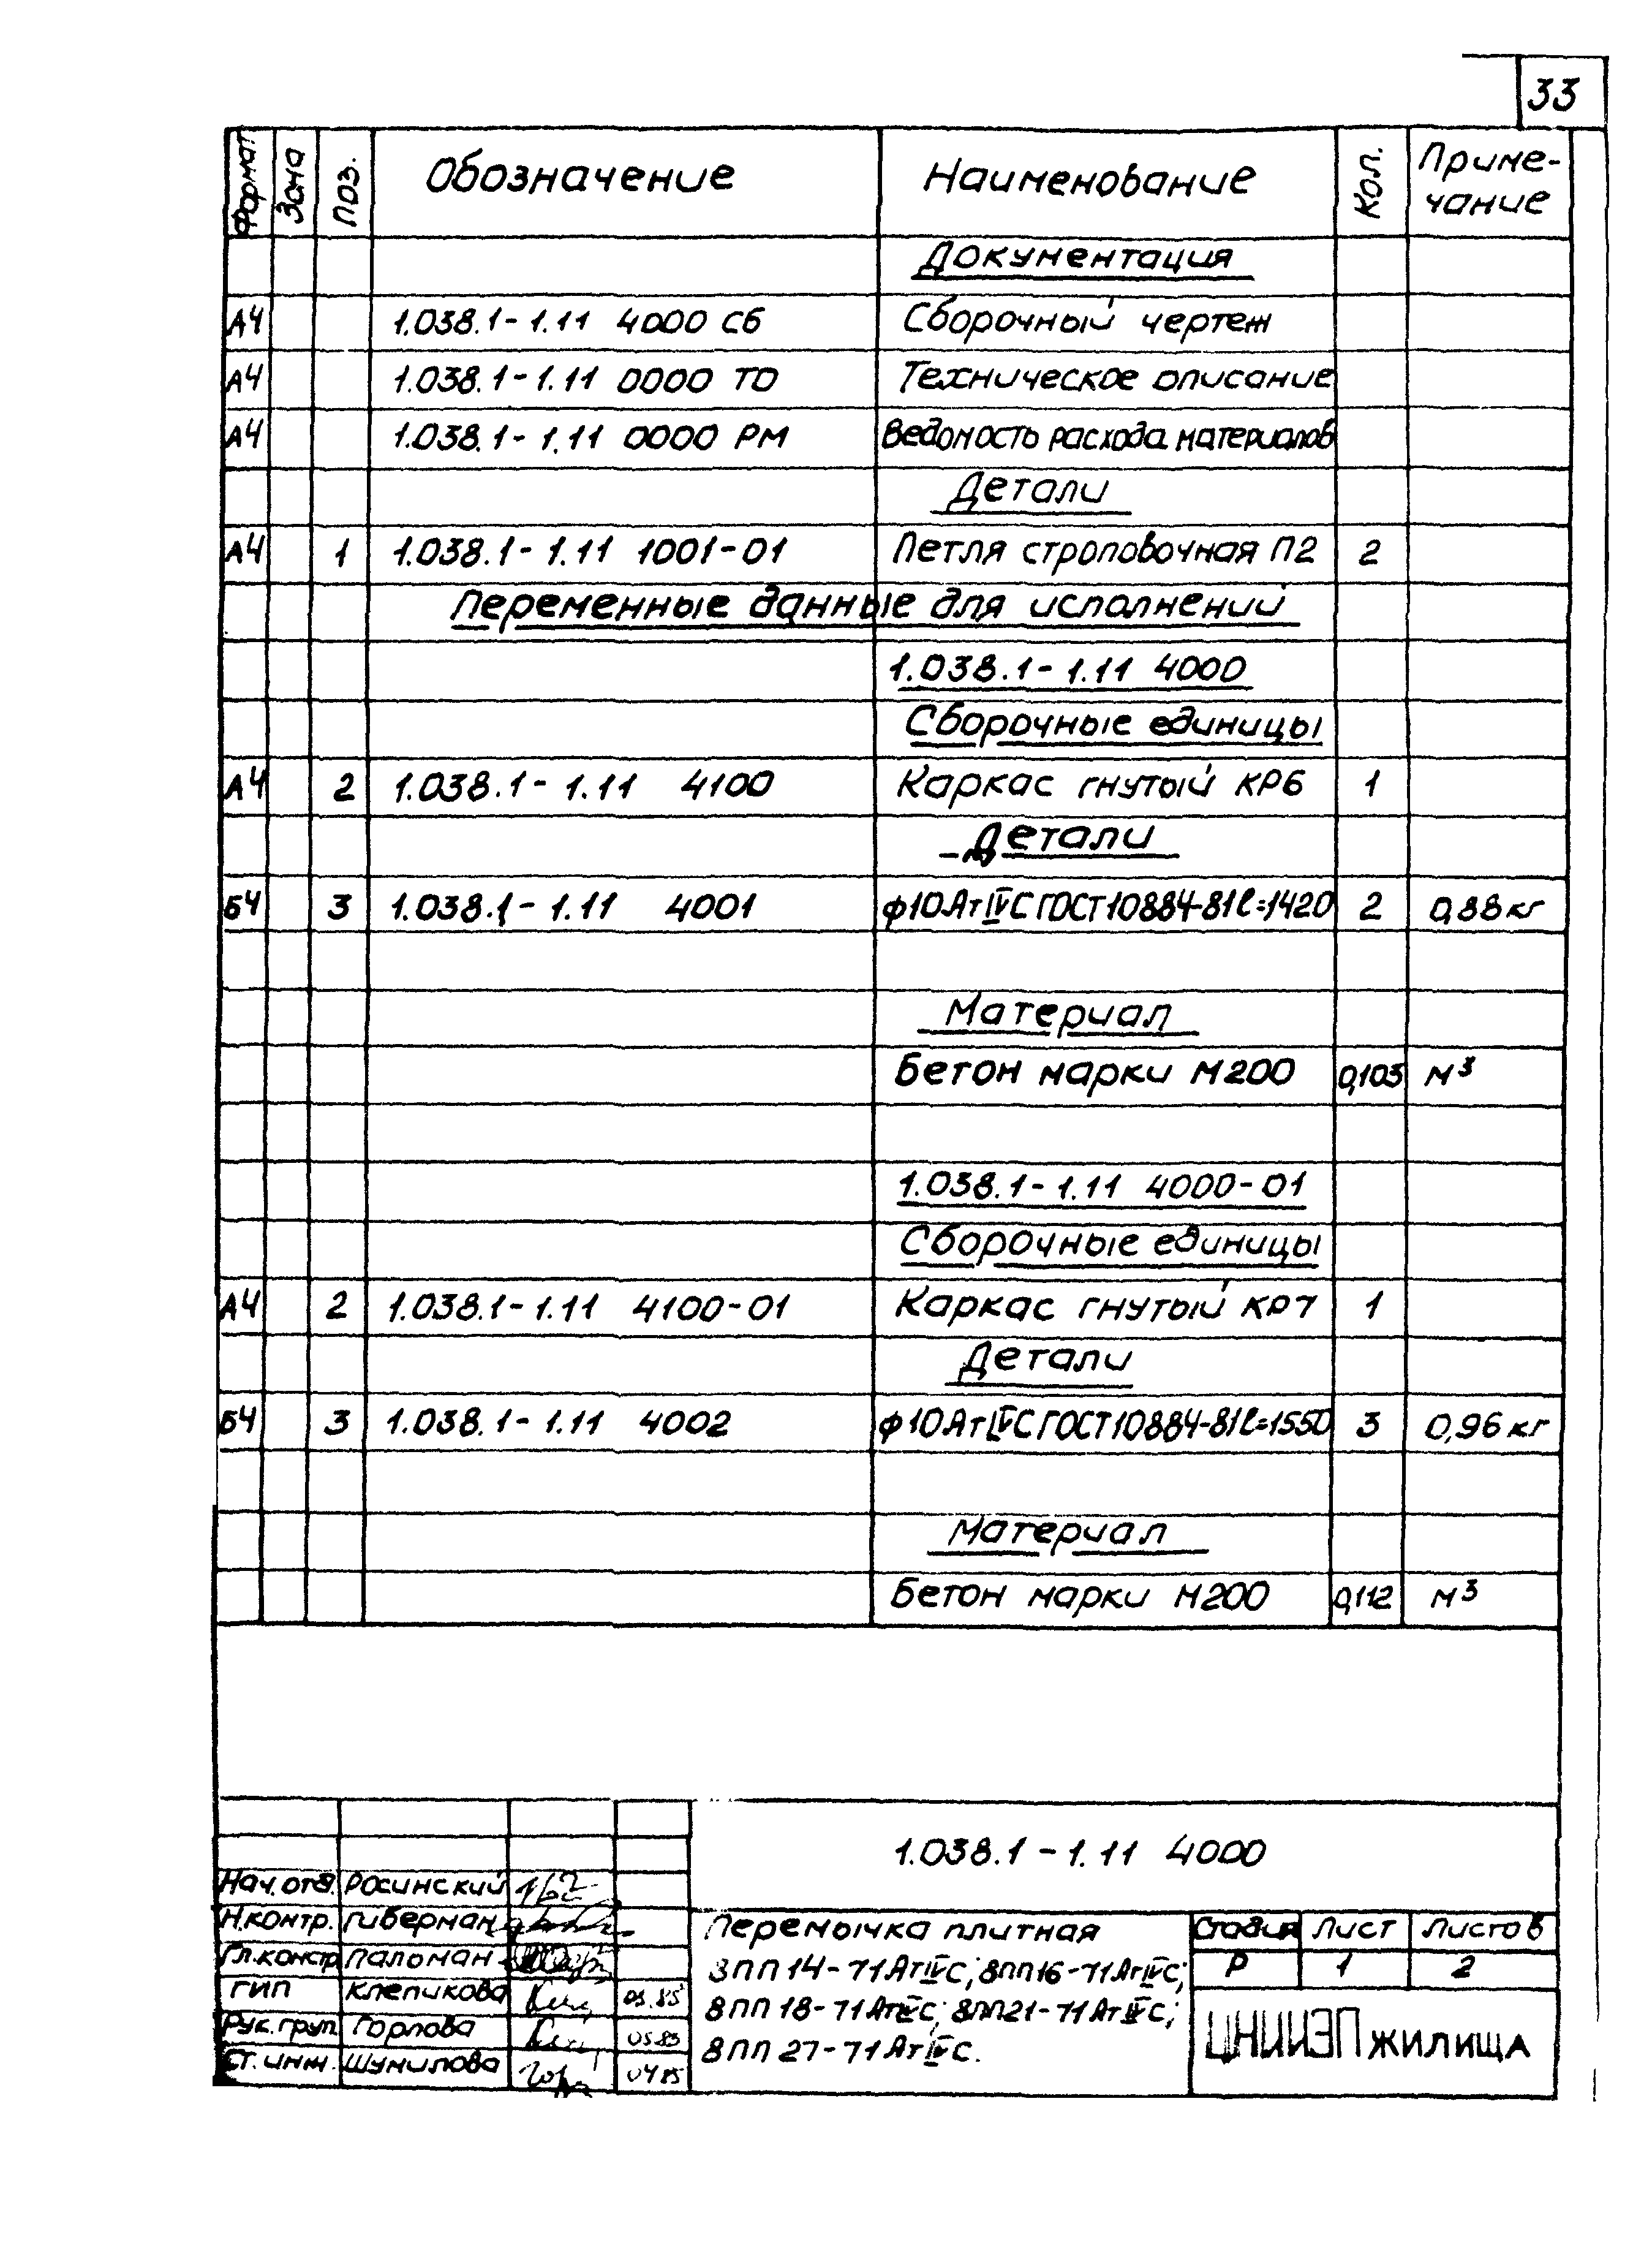 33
Формат Зона Поз. Обозначение Наименование Кол. Приме-
чание
Документация
А4 1.038.1-1.11 4000 СБ Сборочный чертеж
А4 1.038.1-1.11 0000 ТО Техническое описание
А4 1.038.1-1.11 0000 РМ Ведомость расхода материалов
Детали
А4 1 1.038.1-1.11 1001-01 Петля строповочная П2 2
Переменные данные для исполнений
1.038.1-1.11 4000
Сборочные единицы
А4 2 1.038.1-1.11 4100 Каркас гнутый КР6 1
Детали
Б4 3 1.038.1-1.11 4001 ф10АтIVС ГОСТ10884-81 l=1420 2 0,88кг
Материал
Бетон марки М200 0,103 м³
1.038.1-1.11 4000-01
Сборочные единицы
А4 2 1.038.1-1.11 4100-01 Каркас гнутый КР7 1
Детали
Б4 3 1.038.1-1.11 4002 ф10АтIVС ГОСТ10884-81 l=1550 3 0,96кг
Материал
Бетон марки М200 0,112 м³
1.038.1-1.11 4000
Нач.отд. Росинский
Н.контр. Гиберман
Гл.констр. Пальман
ГИП Клепикова 05.85
Рук.груп. Горлова 05.85
Ст.инж. Шумилова 04.85
Перемычка плитная
8ПП14-71АтIVС; 8ПП16-71АтIVС;
8ПП18-71АтIVС; 8ПП21-71АтIVС;
8ПП27-71АтIVС.
Стадия Лист Листов
Р 1 2
ЦНИИЭП жилища